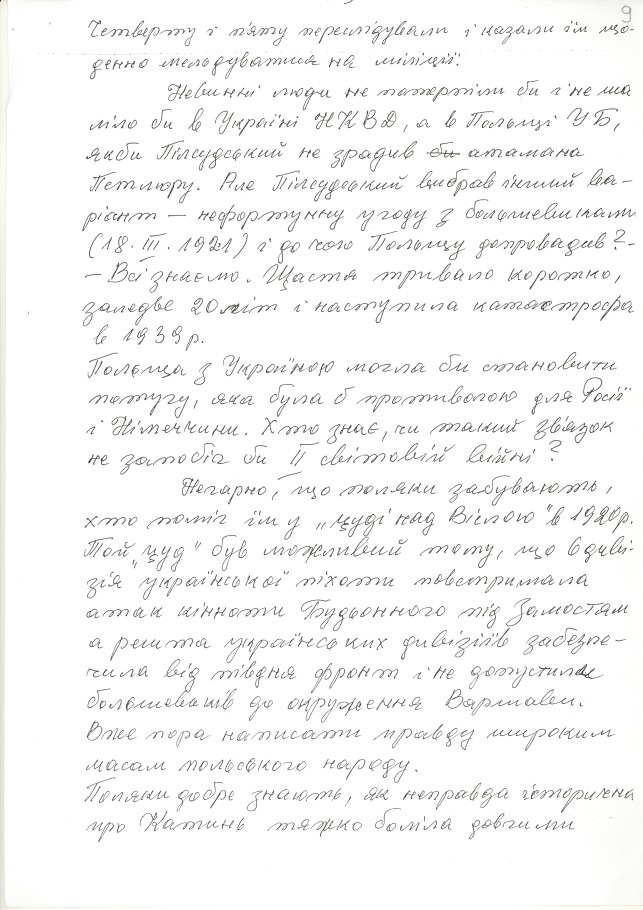 9
Четверту і п'яту переслідували і казали їм що-
денно мельдуватися на міліції.
Невинні люди не потерпіли би і не ша
ліло би в Україні НКВД, а в Польщі УБ,
якби Пілсудський не зрадив би атамана
Петлюру. Але Пілсудський вибрав інший ва-
ріант – нефортунну угоду з большевиками
(18. III. 1921) і до чого Польщу допровадив? -
– Всі знаємо. Щастя тривало коротко,
заледве 20 літ і наступила катастрофа
в 1939 р.
Польща з Україною могла би становити
потугу, яка була б противагою для Росії
і Німеччини. Хто знає, чи такий зв'язок
не запобіг би II світовій війні?
Негарно, що поляки забувають,
хто поміг їм у „цуді над Віслою" в 1920 р.
Той „цуд" був можливий тому, що 6 диві-
зія української піхоти повстримала
атак кінноти Будьонного під Замостям
а решта українських дивізіїв забезпе-
чила від півдня фронт і не допустила
большевиків до окруження Варшави.
Вже пора написати правду широким
масам польського народу.
Поляки добре знають, як неправда історична
про Катинь тяжко боліла довгими